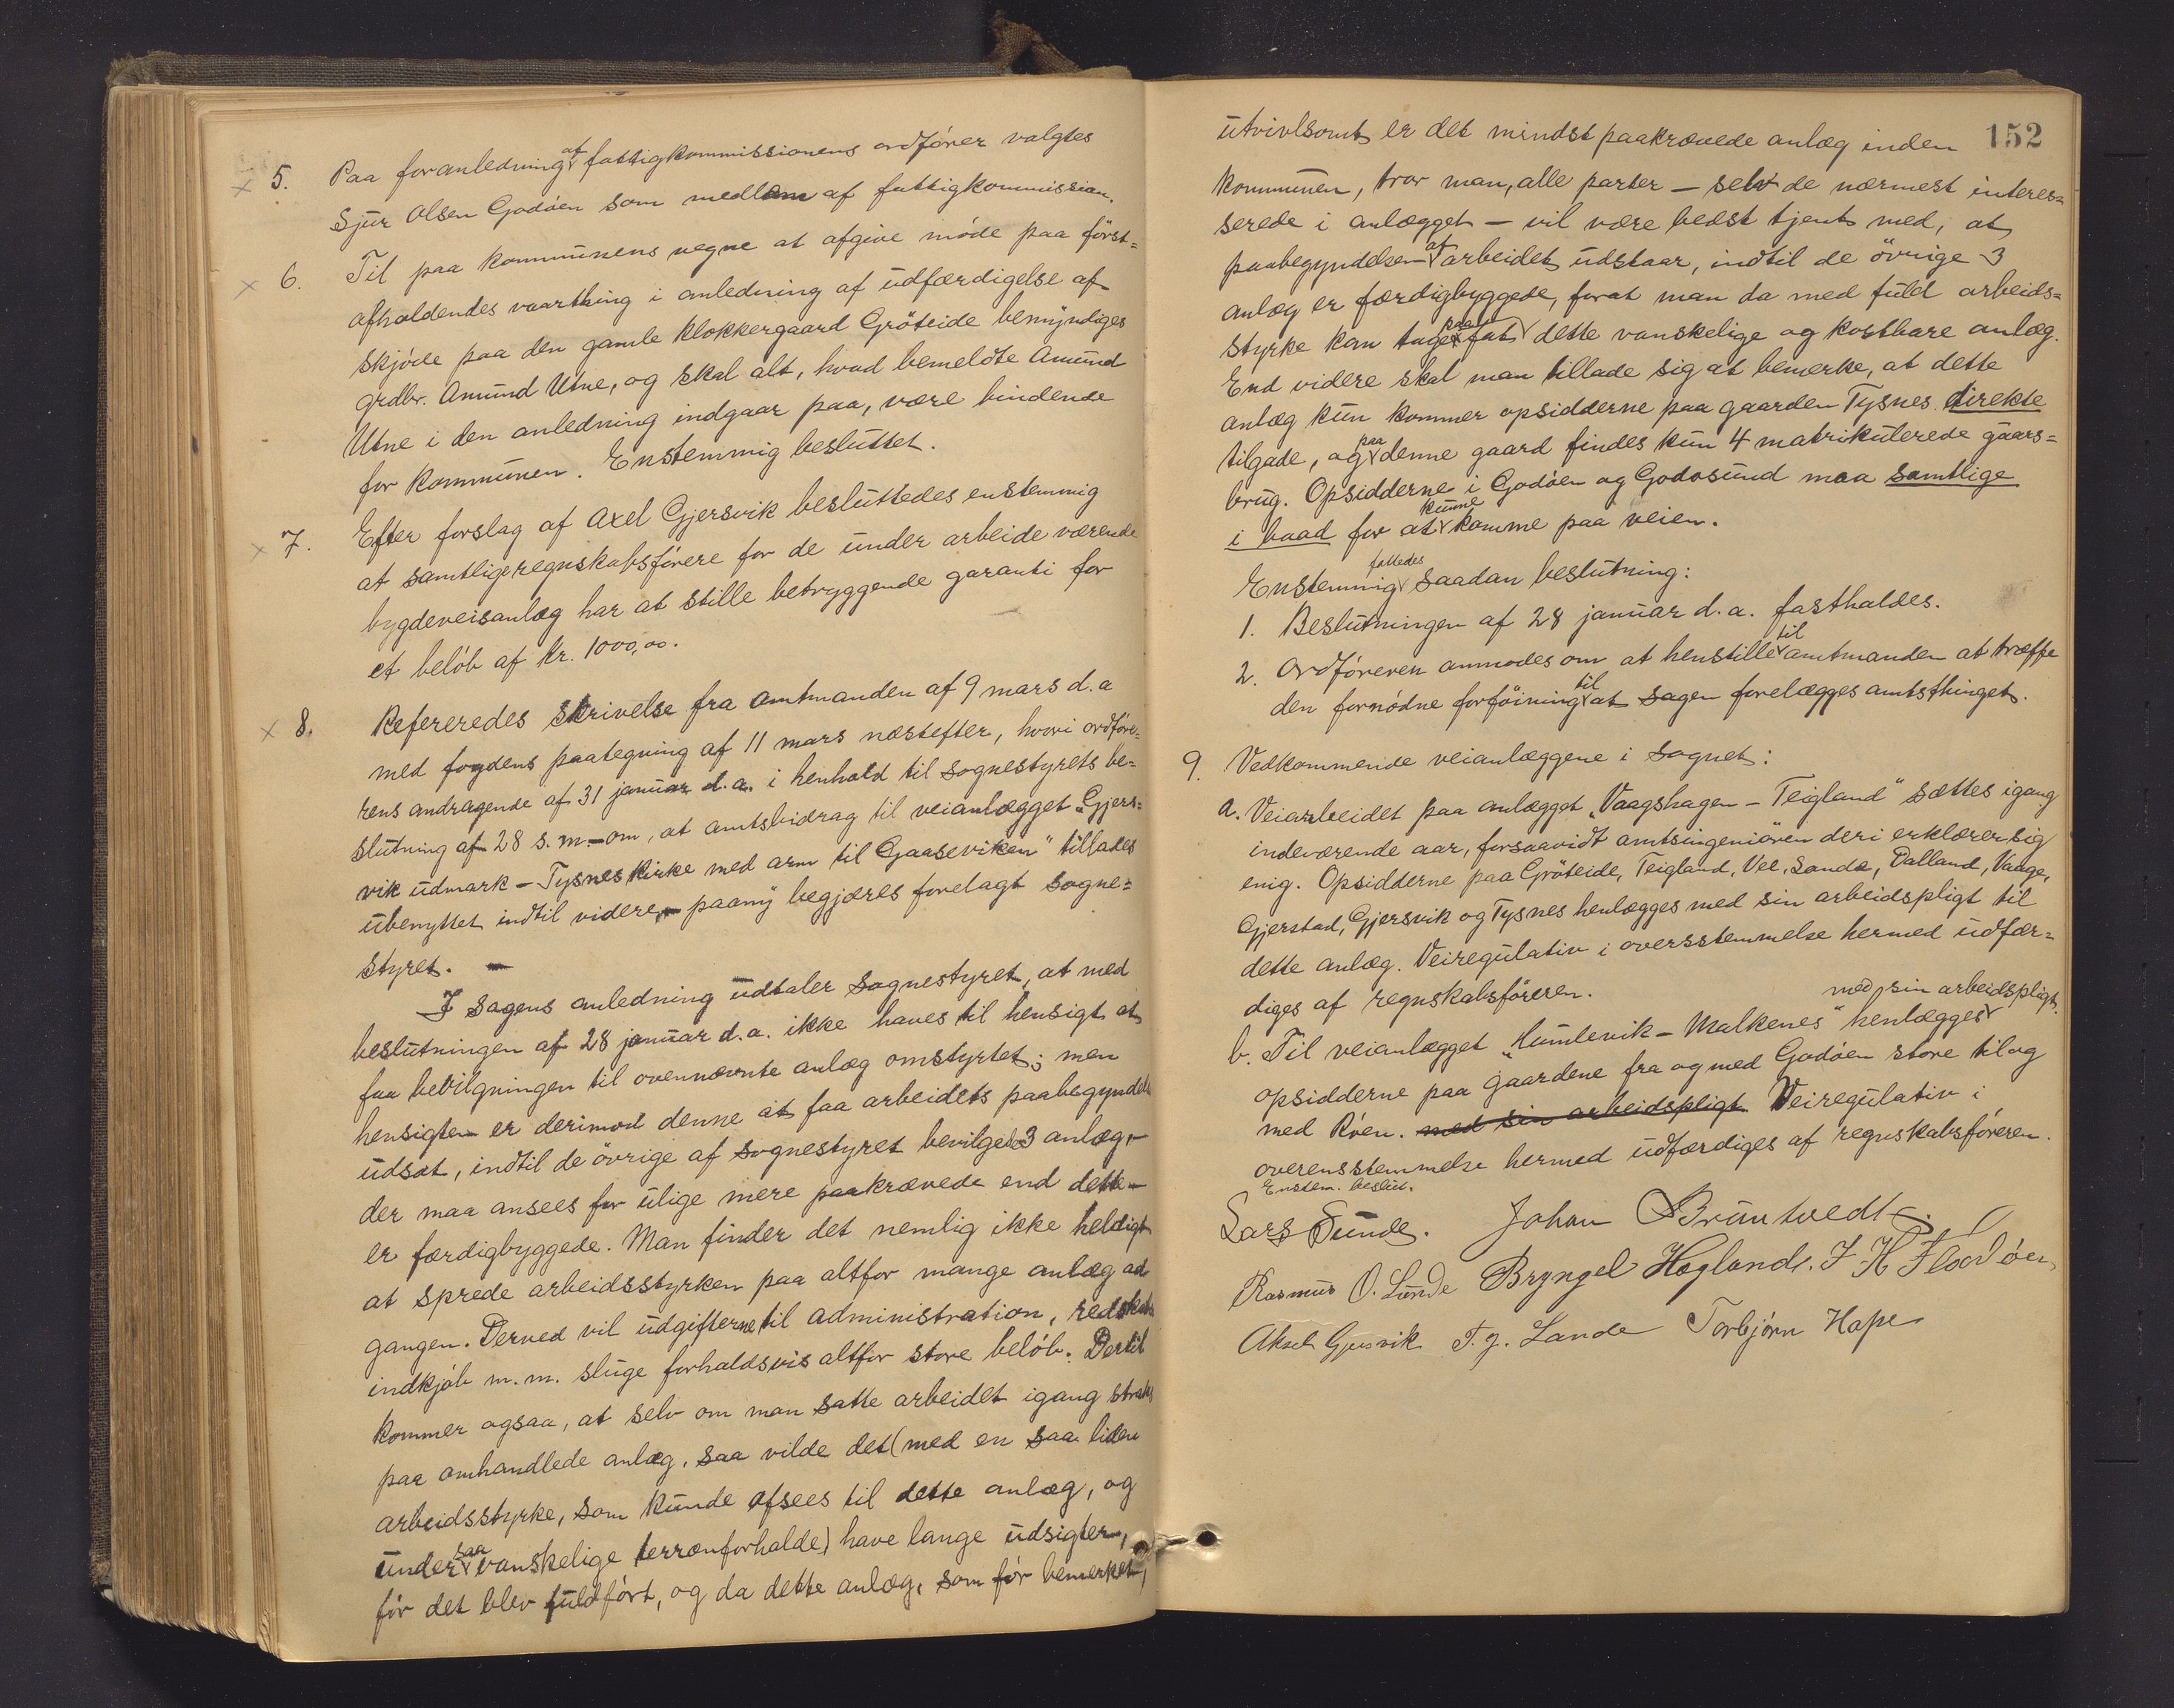 × 5. Paa foranledning af fattigkommissionens ordfører valgtes
Sjur Olsen Godøen som medlem af fattigkommission.
× 6. Til paa kommunens vegne at afgive møde paa først=
afholdendes vaarthing i anledning af udfærdigelse af
skjøde paa den gamle klokkergaard Grøteide bemyndiges
grdbr. Amund Utne, og skal alt, hvad bemeldte Amund
Utne i den anledning indgaar paa, være bindende
for kommunen. Enstemmig besluttet.
× 7. Efter forslag af Axel Gjersvik besluttedes enstemmig
at samtlige regnskabsførere for de under arbeide værende
bygdeveisanlæg har at stille betryggende garanti for
et beløb af kr. 1000,00.
× 8. Refereredes skrivelse fra amtmanden af 9 mars d.a
med fogdens paategning af 11 mars næstefter, hvori ordføre=
rens andragende af 31 januar d.a. i henhold til sognestyrets be=
slutning af 28 s.m. – om, at amtsbidrag til veianlægget „Gjers=
vik udmark – Tysnes kirke med arm til Gaaseviken" tillades
ubenyttet indtil videre, – paany begjæres forelagt sogne=
styret. –
I sagens anledning udtaler sognestyret, at med
beslutningen af 28 januar d.a. ikke haves til hensigt at
faa bevilgningen til ovennævnte anlæg omstyrtet; men
hensigten er derimod denne at faa arbeidets paabegyndelse
udsat, indtil de øvrige af sognestyret bevilgede 3 anlæg, –
der maa ansees for ulige mere paakrævede end dette –
er færdigbyggede. Man finder det nemlig ikke heldigt
at sprede arbeidsstyrken paa altfor mange anlæg ad
gangen. Derved vil udgifterne til administration, redskabs
indkjøb m.m. sluge forholdsvis altfor store beløb. Dertil
kommer ogsaa, at selv om man satte arbeidet igang straks
paa omhandlede anlæg, saa vilde det (med en saa liden
arbeidsstyrke, som kunde afsees til dette anlæg, og
under saa vanskelige terrænforholde) have lange udsigter,
før det blev fuldført, og da dette anlæg, som før bemerket,
152
utvivlsomt er det mindst paakrævede anlæg inden
kommunen, tror man, alle parter – selv de nærmest interes=
serede i anlægget – vil være bedst tjent med, at
paabegyndelsen af arbeidet udstaar, indtil de øvrige 3
anlæg er færdigbyggede, forat man da med fuld arbeids=
styrke kan tage fat paa dette vanskelige og kostbare anlæg.
End videre skal man tillade sig at bemerke, at dette
anlæg kun kommer opsidderne paa gaarden Tysnes direkte
tilgode, og paa denne gaard findes kun 4 matrikulerede gaars=
brug. Opsidderne i Godøen og Godosund maa samtlige
i baad for at kunne komme paa veien.
Enstemmig fattedes saadan beslutning:
1. Beslutningen af 28 januar d.a. fastholdes.
2. Ordføreren anmodes om at henstille til amtmanden at træffe
den fornødne forføining til at sagen forelægges amtsthinget.
9. Vedkommende veianlæggene i sognet:
a. Veiarbeidet paa anlægget „Vaagshagen – Teigland" sættes igang
indeværende aar, forsaavidt amtsingeniøren deri erklærer sig
enig. Opsidderne paa Grøteide, Teigland, Vee, Sande, Dalland, Vaage,
Gjerstad, Gjersvik og Tysnes henlægges med sin arbeidspligt til
dette anlæg. Veiregulativ i oversstemmelse hermed udfær=
diges af regnskabsføreren.
b. Til veianlægget „Humlevik – Malkenes" henlægges med sin arbeidspligt
opsidderne paa gaardene fra og med Godøen store til og
med Røen. med sin arbeidspligt Veiregulativ i
overensstemmelse hermed udfærdiges af regnskabsføreren.
Enstem. beslut.
Lars Sunde. Johan Bruntvedt.
Rasmus O. Lunde Bryngel Hoglands. J H Flodøen
Aksel Gjersvik T. J. Lande Torbjørn Hope